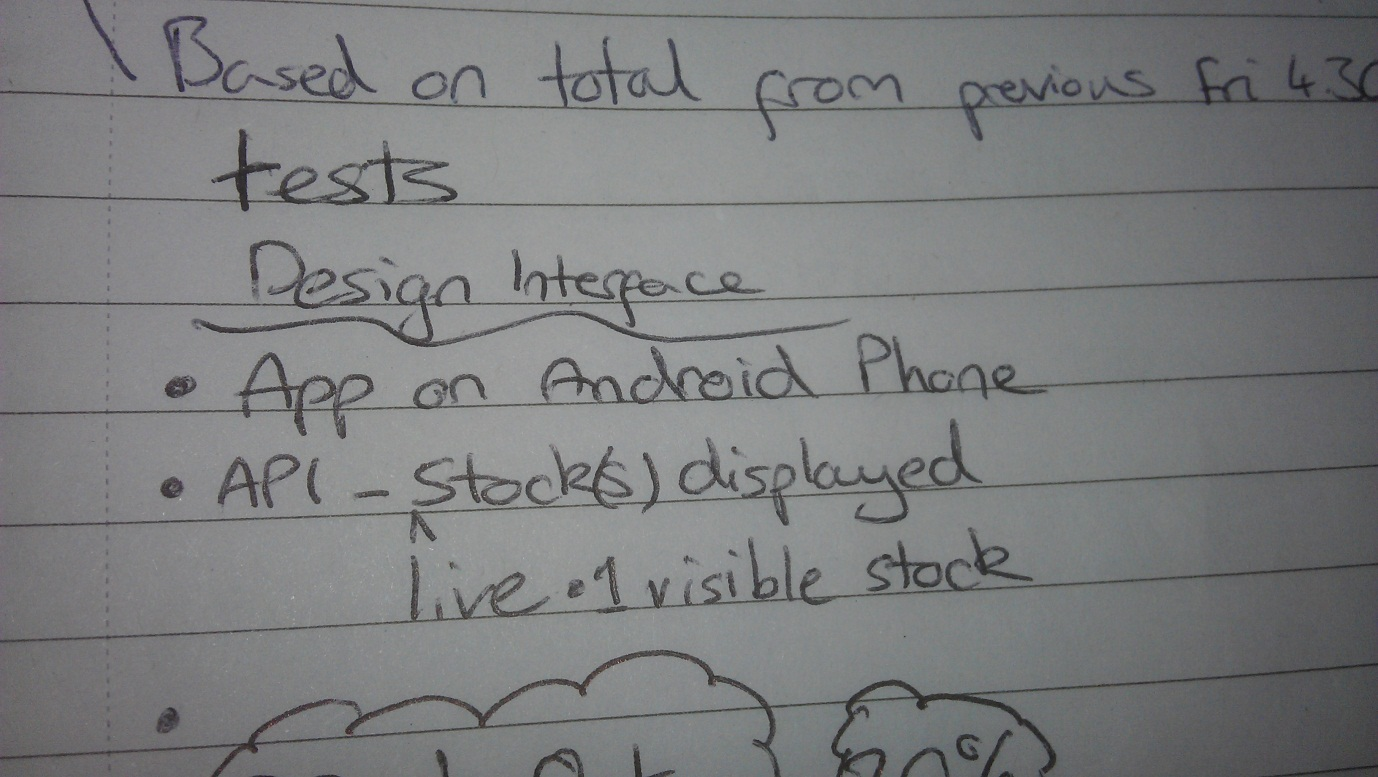 Based on total from previous Fri 4.30
tests
Design Interface
• App on Android Phone
• API - Stock(s) displayed
live • 1 visible stock
•